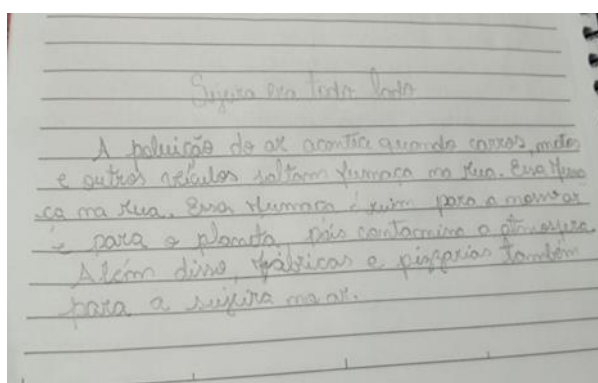 Sujeira pra todo lado
A poluição do ar acontice quando carros, motos
e outros veículos soltam fumaça na rua. Essa fuma
ça na rua. Essa fumaça é ruim para a
é para o planeta, pois contamina a atmosfera.
Além disso, fábricas e pizzarias também
para a sujeira no ar.